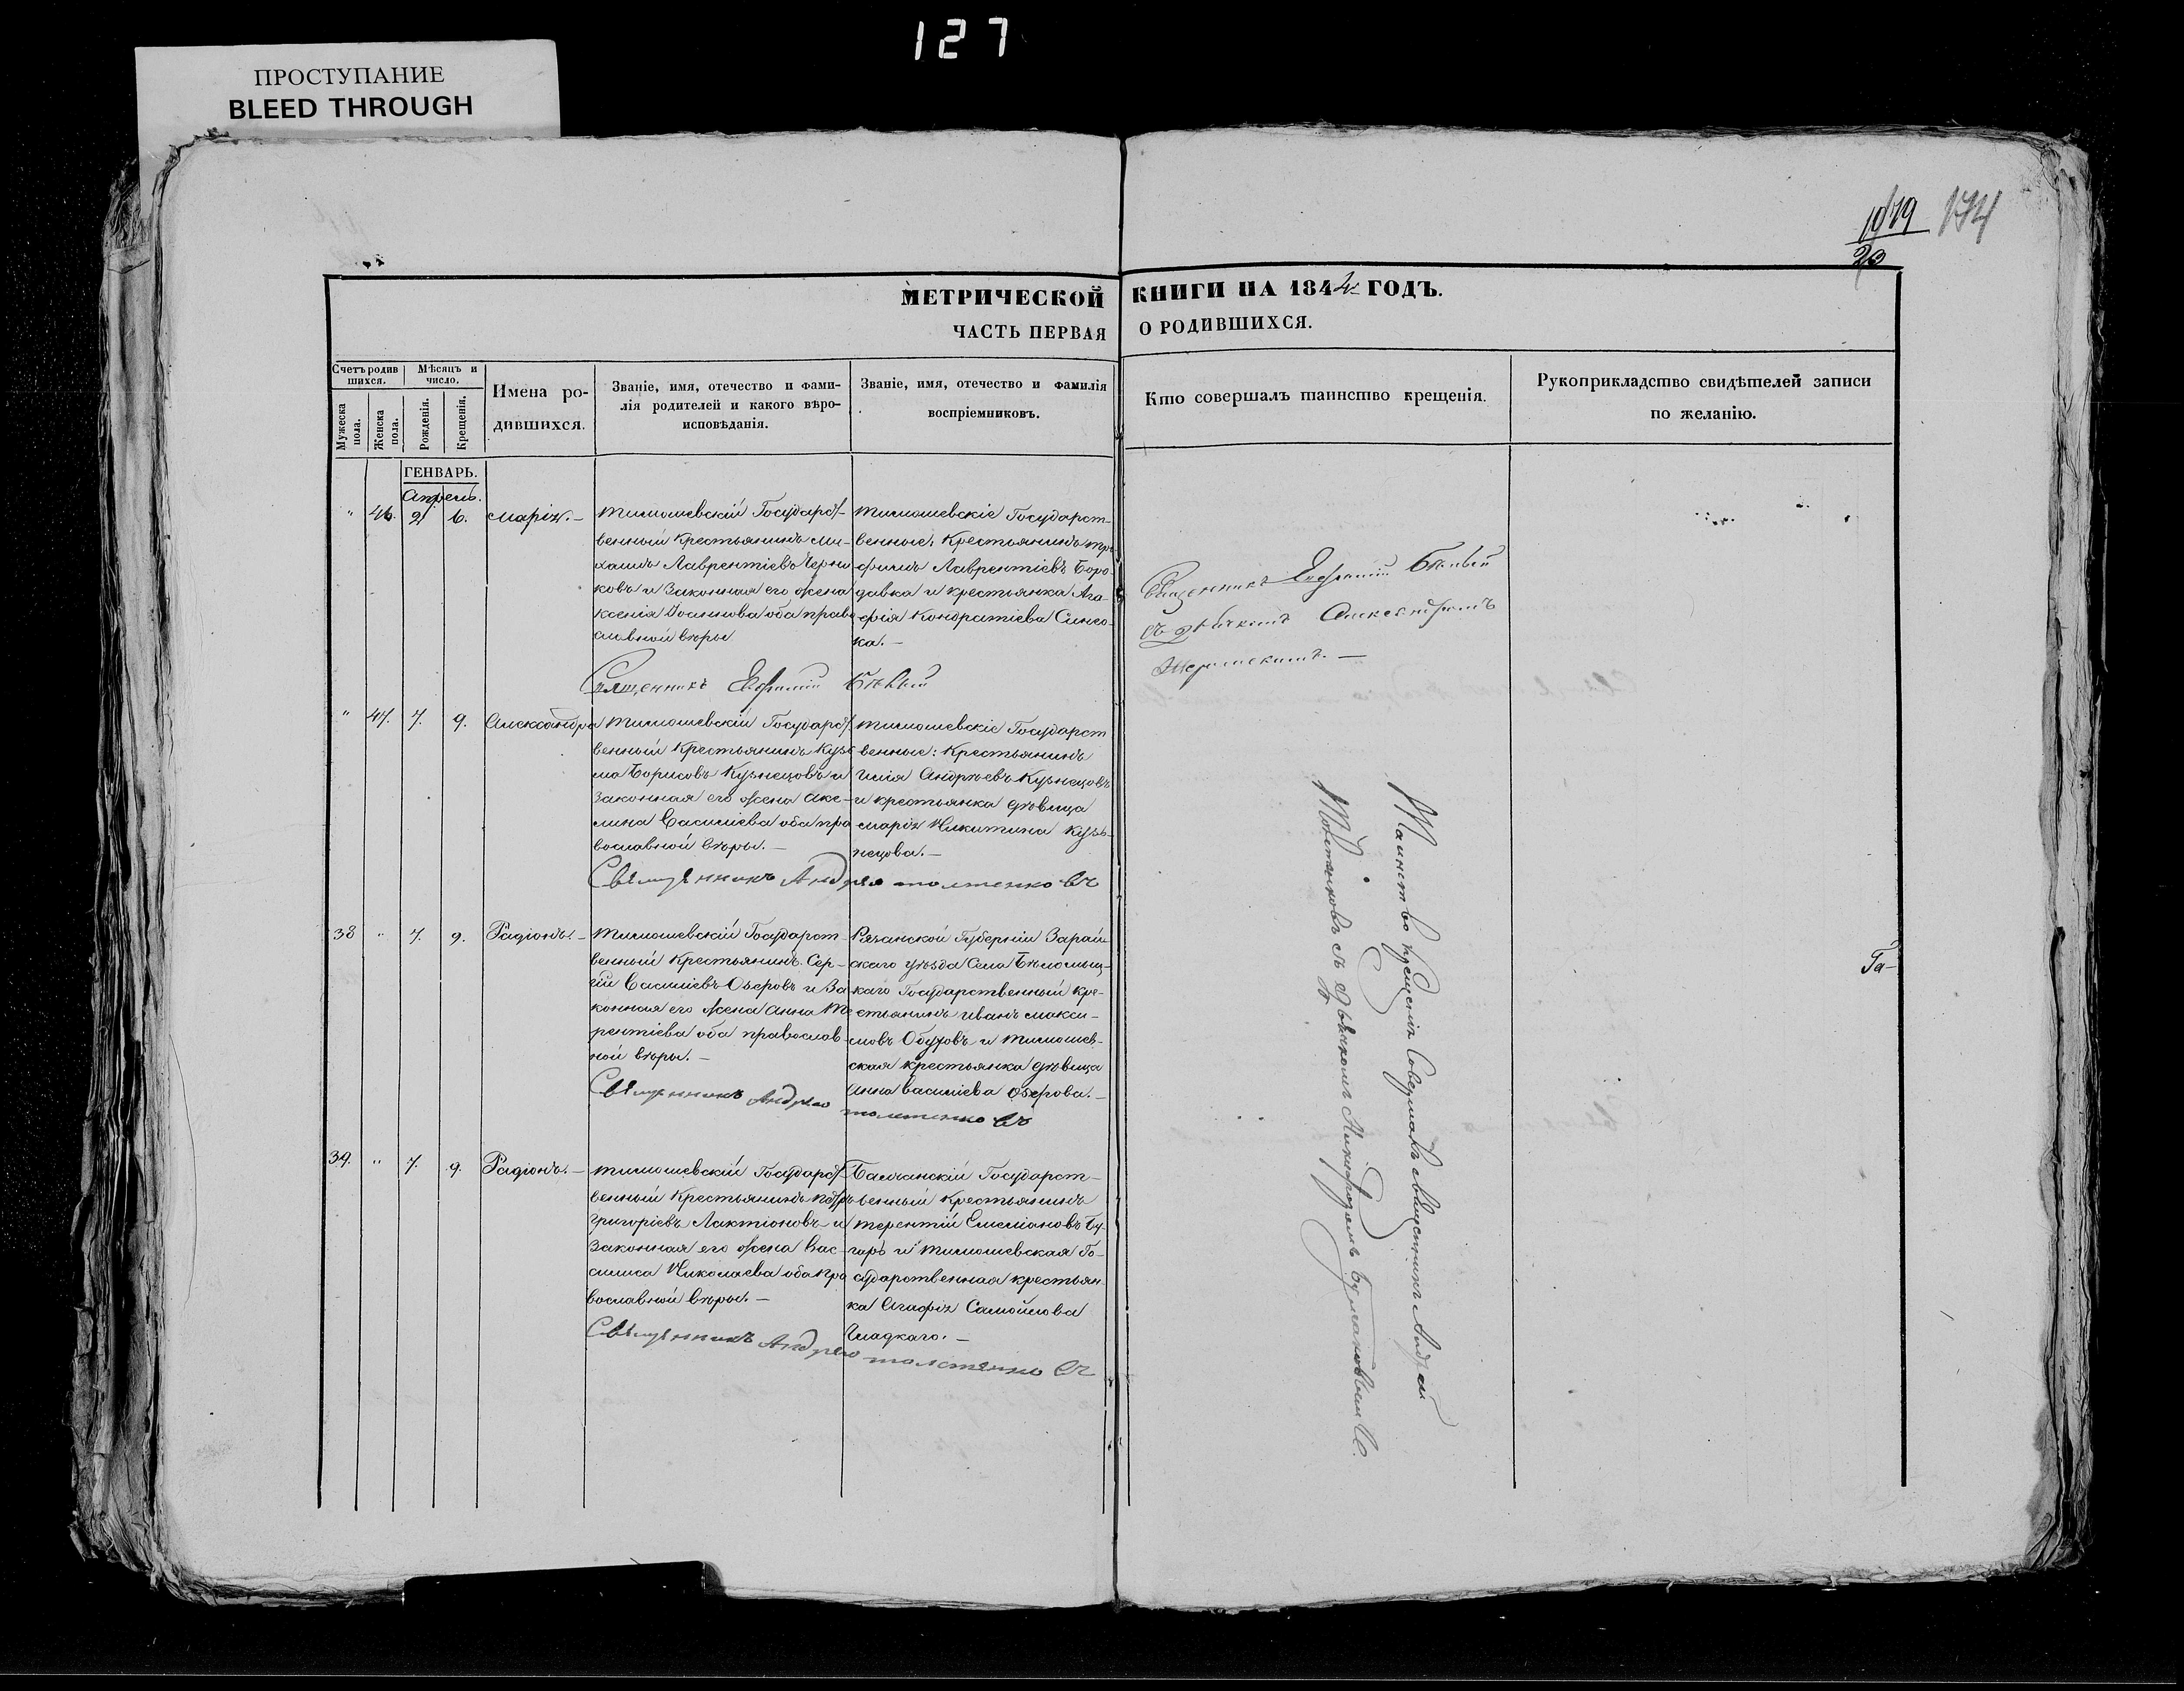 127
ПРОСТУПАНИЕ
BLEED THROUGH
1979 174
20
МЕТРИЧЕСКОЙ КНИГИ НА 1844 ГОДЪ.
ЧАСТЬ ПЕРВАЯ О РОДИВШИХСЯ.
Счетъ родив
шихся.
Мужеска
пола.
Женска
пола.
Мѣсяцъ и
число.
Рожденія.
Крещенія.
Имена ро-
дившихся.
Званіе, имя, отечество и фами-
лія родителей и какого вѣро-
исповѣданія.
Званіе, имя, отечество и фамилія
воспріемниковъ.
Кто совершалъ таинство крещенія.
Рукоприкладство свидѣтелей записи
по желанію.
ГЕНВАРЬ.
Апрель.
" 46. 2 6. Марія.-
Тимошевскій Государст-
венный крестьянинъ Ми-
хаилъ Лаврентіевъ Черни
ковъ и Законная его жена
Ксенія Іоаннова оба право
славной вѣры
Тимошевскіе Государст-
венные: Крестьянинъ Тро
фимъ Лаврентіевъ Боро-
давка и крестьянка Ага-
фія Кондратіева Синео-
ка.-
Священникъ Евфимій Бѣлый
Священникъ Евфимій Бѣлый
съ дьячкомъ Александромъ
" 47. 7. 9. Александра
Тимошевскій Государст
венный Крестьянинъ Кузь
ма Борисовъ Кузнецовъ и
Законная его жена Аке-
лина Василіева оба пра
вославной вѣры.-
Тимошевскіе Государст
венные: Крестьянинъ
Илія Андреевъ Кузнецовъ
и крестьянка дѣвица
Марія Никитина Кузь-
нецова.-
Священникъ Андрей Толстенковъ
38 " 7. 9. Радіонъ.-
Тимошевскій Государст-
венный Крестьянинъ Сер-
гій Василіевъ Озеровъ и За
конная его жена Анна Те
рентіева оба православ-
ной вѣры.-
Рязанской Губерніи Зарай
скаго уѣзда Села Бѣломыц-
каго Государственный кре-
стьянинъ Иванъ Макси-
мовъ Обуховъ и Тимошев-
ская крестьянка дѣвица
Анна Василіева Озерова.-
Священникъ Андрей Толстенковъ
39. " 7. 9. Радіонъ.-
Тимошевскій Государст
венный Крестьянинъ Петръ
Григоріевъ Лактіоновъ и
Законная его жена Вас-
силиса Николаева оба пра
вославной вѣры.-
Балчанскій Государст-
венный Крестьянинъ
Терентій Емеліановъ Бу-
гаръ и Тимошевская Го-
сударственная крестьян-
ка Агафія Самойлова
Гладкаго.-
Священникъ Андрей Толстенковъ
Таинство крещенія совершалъ священникъ Андрей
Толстенковъ съ дьячкомъ Никифоромъ
Га-